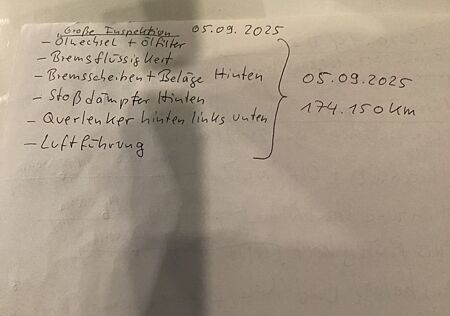 Große Inspektion 05.09.2025
- Ölwechsel + Ölfilter
- Bremsflüssigkeit
- Bremsscheiben + Beläge Hinten
- Stoßdämpfer Hinten
- Querlenker hinten links unten
- Luftführung
05.09.2025
174.150 km